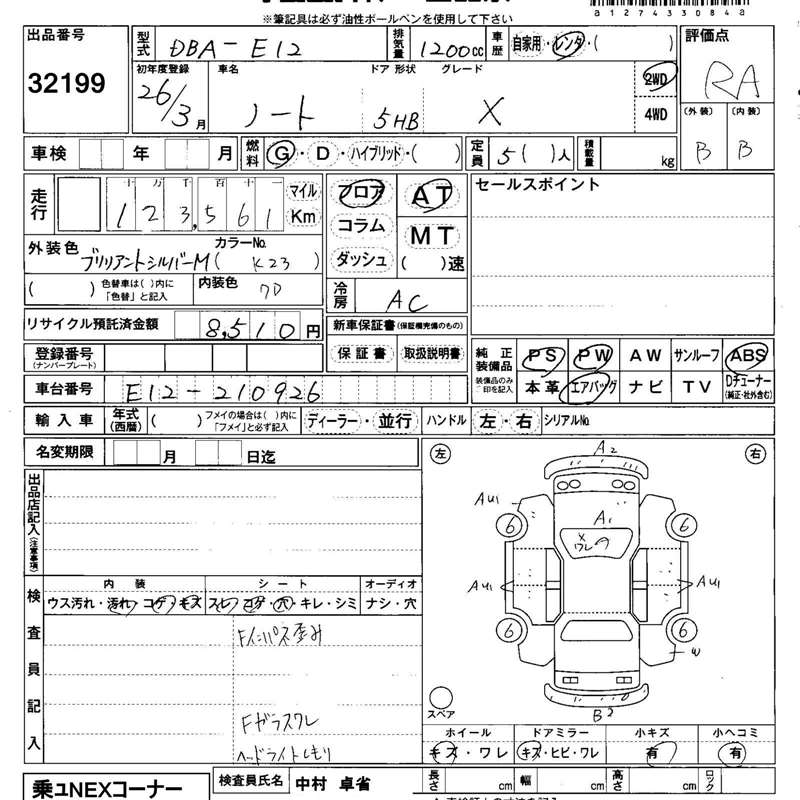 ※筆記具は必ず油性ボールペンを使用して下さい
a12743308 4a
出品番号 型式 DBA-E12 排気量 1200cc 車歴 自家用・レンタ・( ) 評価点
32199 RA
初年度登録 車名 ドア 形状 グレード 2WD
26/3月 ノート 5HB X 4WD
(外装) (内装)
B B
車検 年 月 燃料 G・D・ハイブリッド・( ) 定員 5( )人 積載量 kg
走行 十 万 千 百 十 一 マイル フロア AT セールスポイント
123,561 Km コラム MT
外装色 カラーNo. ダッシュ ( )速
ブリリアントシルバーM( K23 )
( ) 色替車は( )内に「色替」と記入 内装色 クロ 冷房 AC
リサイクル預託済金額 8,510円 新車保証書(保証欄完備のもの)
登録番号 (ナンバープレート) 保証書 取扱説明書 純正装備品 PS PW AW サンルーフ ABS
車台番号 E12-210926 装備品のみ○印を記入 本革 エアバッグ ナビ TV Dチューナー(純正・社外含む)
輸入車 年式(西暦) ( ) フメイの場合は( )内に「フメイ」と必ず記入 ディーラー・並行 ハンドル 左・右 シリアルNo.
名変期限 月 日迄
左 右
A2
出品店記入(注意事項)
AU1 6 A1 6
X ワレ
AU1 AU1
検査員記入 内装 シート オーディオ
ウス汚れ・汚れ・コゲ・キズ スレ・コゲ・穴・キレ・シミ ナシ・穴
6 6
Fインパネ歪み
W
Fガラスワレ
ヘッドライトくもり
スペア
B2
ホイール ドアミラー 小キズ 小ヘコミ
キズ・ワレ キズ・ヒビ・ワレ 有 有
乗ュNEXコーナー 検査員氏名 中村 卓省 長さ cm 幅 cm 高さ cm ロック